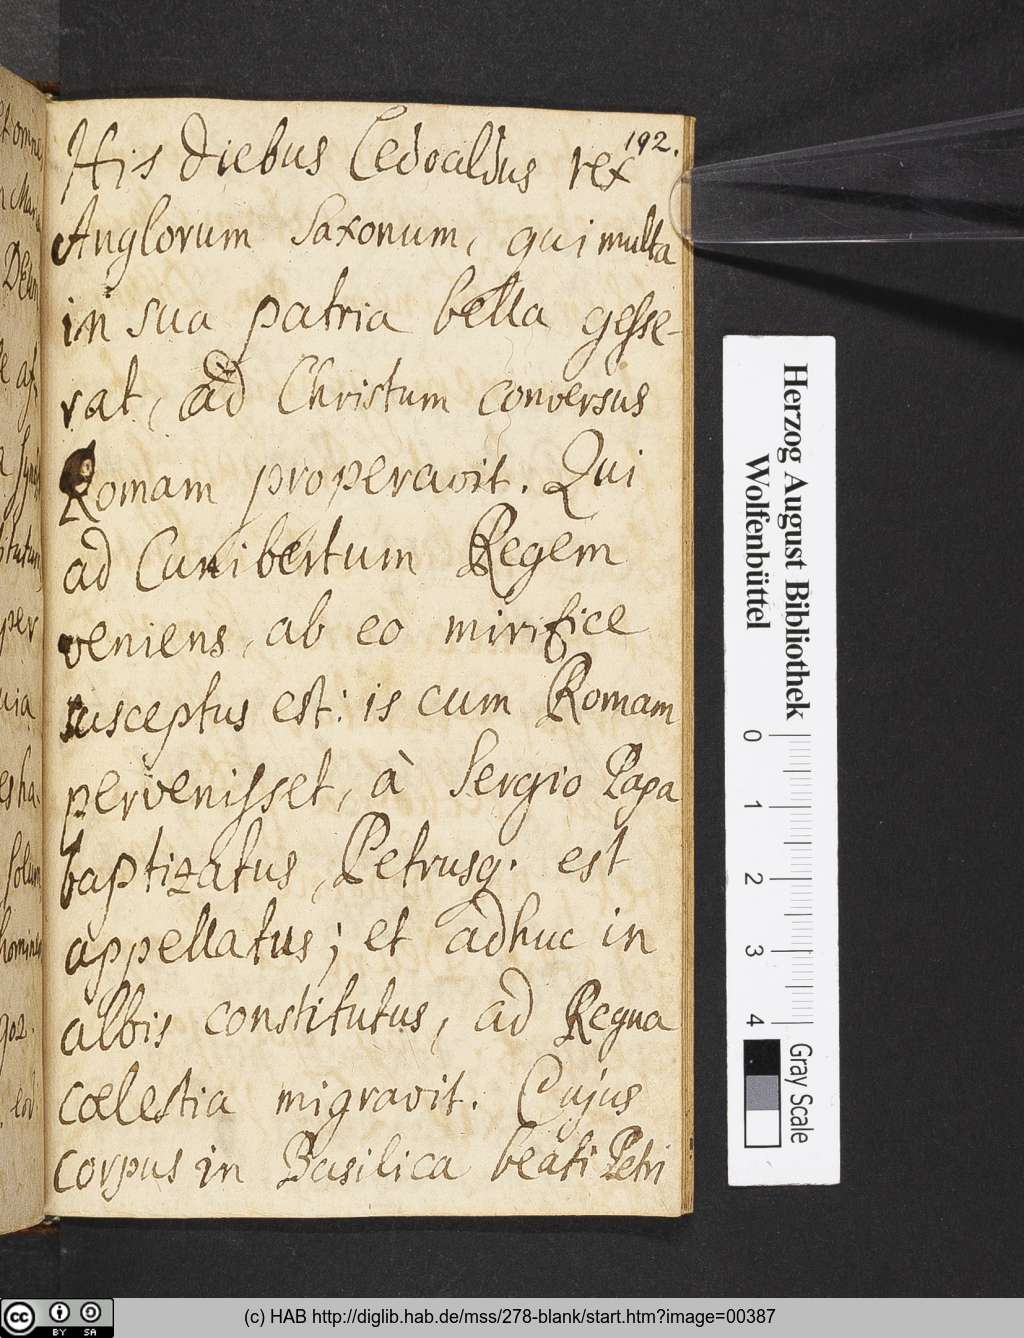 192.
His diebus Cedoaldus rex
Anglorum Saxonum, qui multa
in sua patria bella gesse-
rat, ad Christum conversus
Romam properavit. Qui
ad Cunibertum Regem
veniens, ab eo mirifice
susceptus est: is cum Romam
pervenisset, à Sergio Papa
baptizatus, Petrusq. est
appellatus; et adhuc in
albis constitutus, ad Regna
cœlestia migravit. Cujus
corpus in Basilica beati Petri
Herzog August Bibliothek
Wolfenbüttel
0 1 2 3 4
Gray Scale
cc BY SA
(c) HAB http://diglib.hab.de/mss/278-blank/start.htm?image=00387